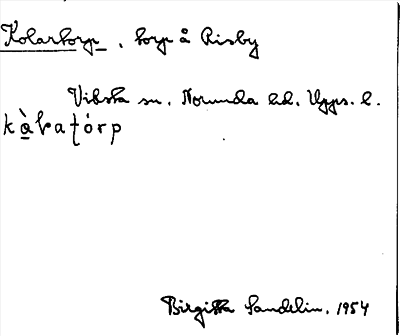 Kolartorp, torp å Risby
Viksta sn. Norunda hd. Upps. l.
kà̱ɫaʈórp
Birgitta Sandelin. 1954